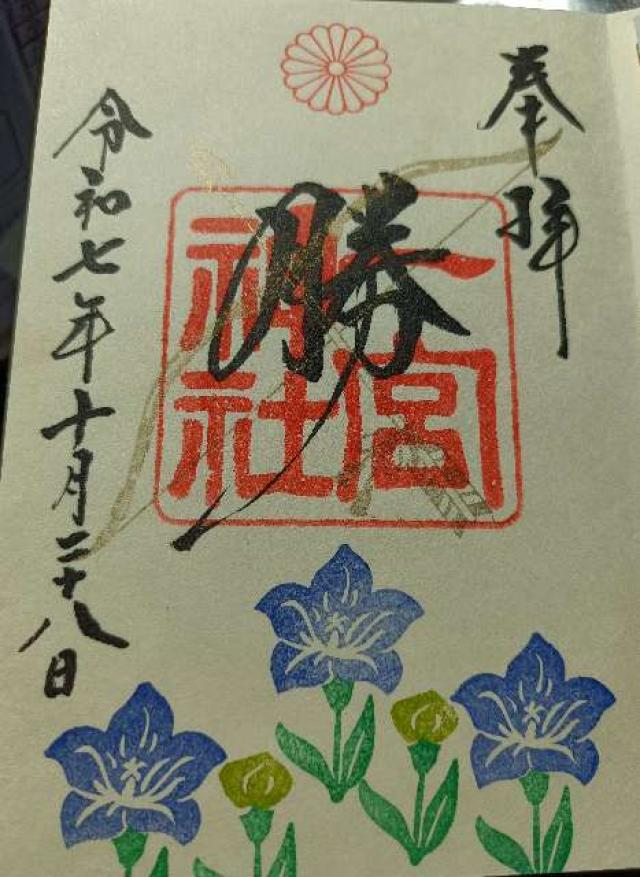 奉拝
勝
一宮
神社
令和七年十月二十八日